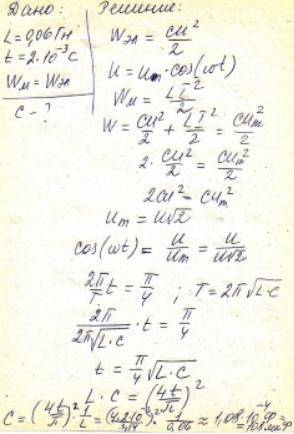 Дано:
L=0,06 Гн
t=2·10⁻³ с
Wм = Wэл
C - ?
Решение:
Wэл = cu²/2
u = uₘ·cos(ωt)
Wм = LI²/2
W = cu²/2 + LI²/2 = cuₘ²/2
2·cu²/2 = cuₘ²/2
2cu² = cuₘ²
uₘ = u√2
cos(ωt) = u/uₘ = u/u√2
2π/T t = π/4 ; T = 2π√L·c
2π/2π√L·c · t = π/4
t = π/4 √L·c
L·c = (4t/π)²
C = (4t/π)²·1/L = (4·2·10⁻³/3,14)²·1/0,06 ≈ 1,08·10⁻⁴ Ф =
= 108 мкФ